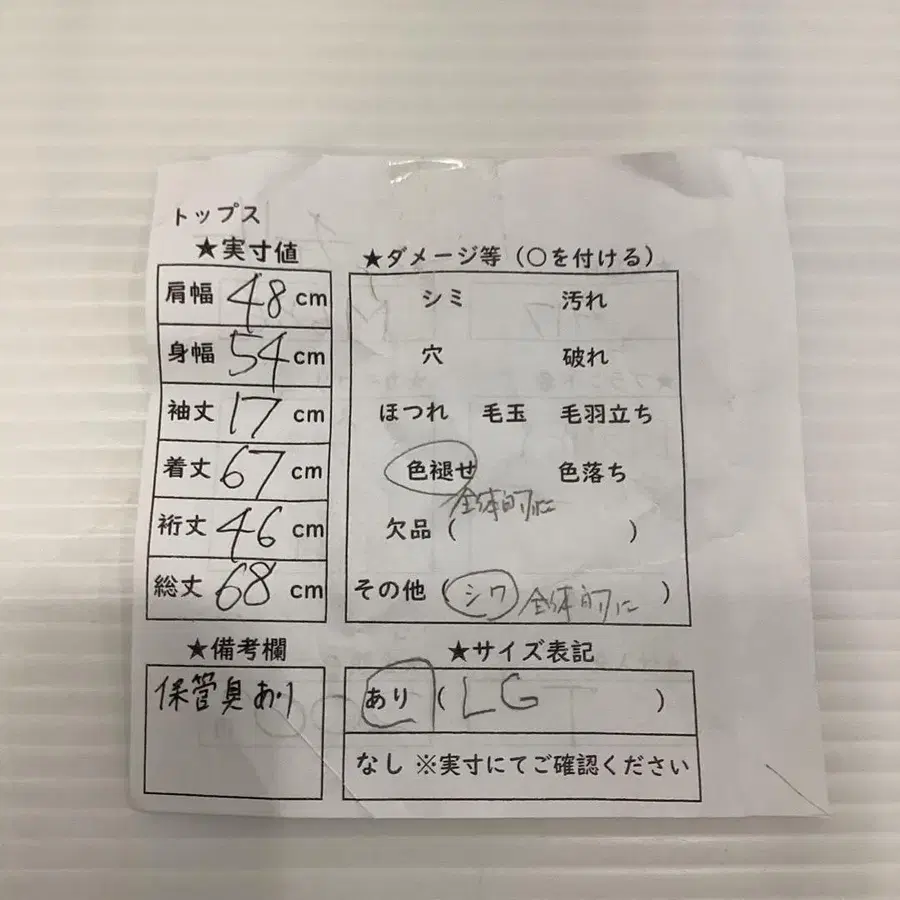 トップス
★実寸値
肩幅 48 cm
身幅 54 cm
袖丈 17 cm
着丈 67 cm
裄丈 46 cm
総丈 68 cm
★備考欄
保管臭あり
★ダメージ等（○を付ける）
シミ 汚れ
穴 破れ
ほつれ 毛玉 毛羽立ち
色褪せ 色落ち
全体的に
欠品（ ）
その他（シワ 全体的に）
★サイズ表記
あり（LG ）
なし ※実寸にてご確認ください